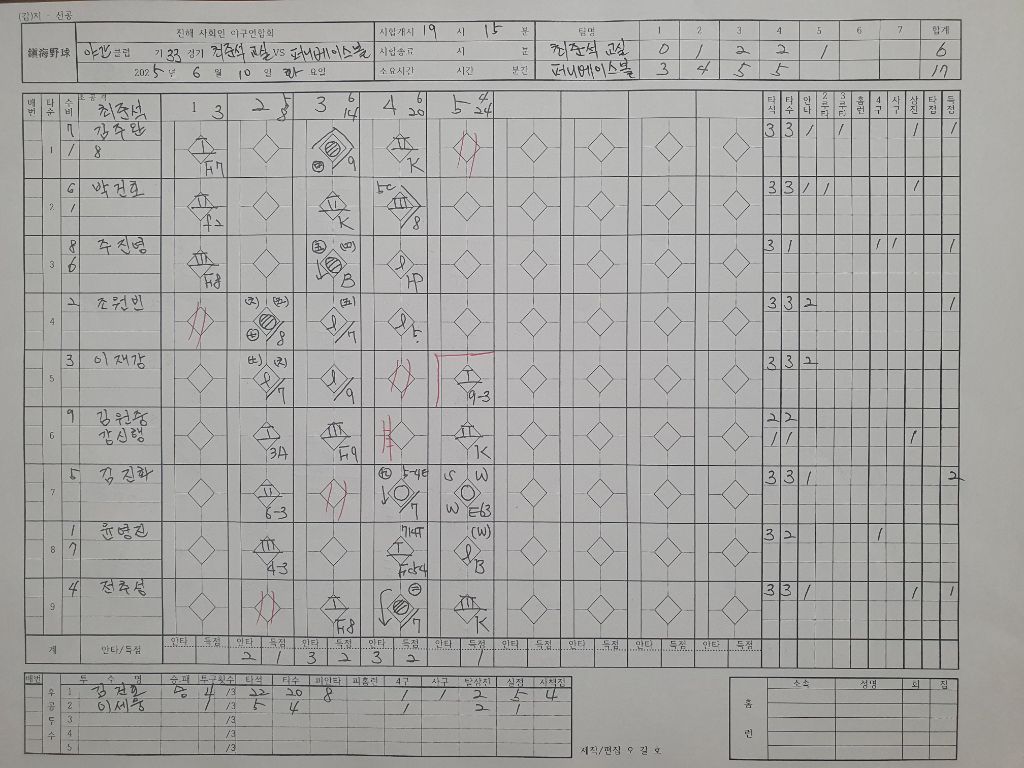 (갑)지 - 선공
鎭海野球
진해 사회인 야구연합회
시합개시 19 시 15 분
팀명 1 2 3 4 5 6 7 합계
야간 클럽 기 33 경기 최준석 교실 VS 퍼니베이스볼
시합종료 시 분
최준석 교실 0 1 2 2 1 6
2025 년 6 월 10 일 화 요일
소요시간 시간 분간
퍼니베이스볼 3 4 5 5 17
배번 타순 수비 초 공격 최준석
1 3 2 5 8 3 6 14 4 6 20 5 4 24
타석 타수 안타 2루타 3루타 홈런 4구 사구 상진 타점 득점
1 7 1 8 I F7 9 II K 3 3 1 1 1 1
2 6 1 박건호 II f2 II K 5C III 8 3 3 1 1 1
3 8 6 주진병 III F8 B HP 3 1 1 1 1
4 2 조원빈 8 7 5 3 3 2 1
5 3 이재강 7 9 I 9-3 3 3 2
6 9 김원중 I 3A III F9 II K 2 2
1 1 1
7 5 김진화 II 6-3 5-4E 7 S W W E63 3 3 1 2
8 1 7 윤영진 III 4-3 I (W) B 3 2 1
9 4 전주성 I F8 7 III K 3 3 1 1 1
계 안타/득점 안타 득점 안타 득점 안타 득점 안타 득점 안타 득점 안타 득점 안타 득점 안타 득점 안타 득점
2 1 3 2 3 2 1
배번 투 수 명 승 패 투구횟수 타석 타수 피안타 피홈런 4구 사구 탈삼진 실점 자책점
후공투수
1 승 4 /3 22 20 8 1 1 2 5 4
2 이세웅 1 /3 5 4 1 2 1
3 /3
4 /3
5 /3
홈런 소속 성명 회 점
제작/편집 우 길 호